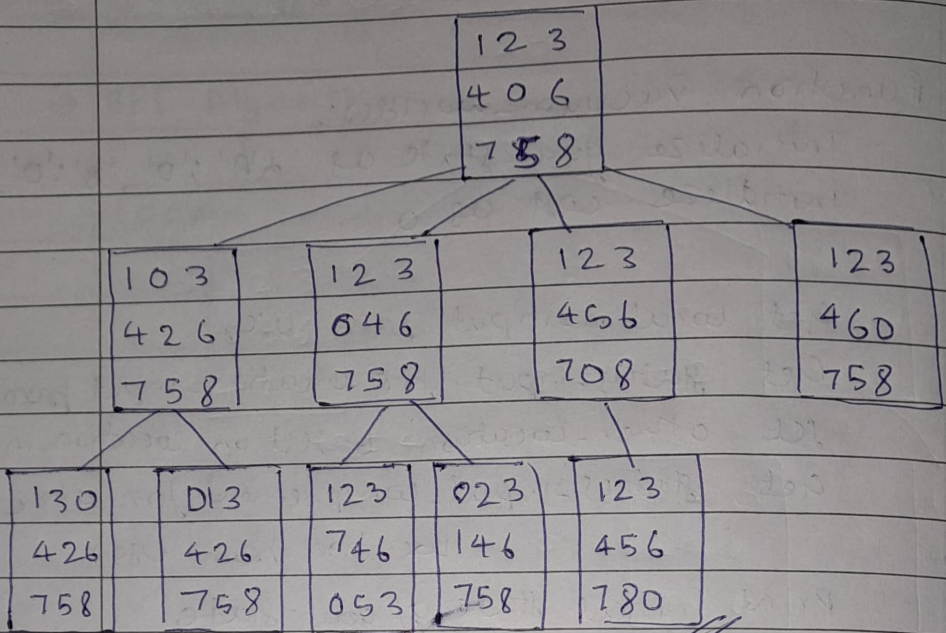 1 2 3
4 0 6
7 5 8
1 0 3
4 2 6
7 5 8
1 2 3
0 4 6
7 5 8
1 2 3
4 5 6
7 0 8
1 2 3
4 6 0
7 5 8
1 3 0
4 2 6
7 5 8
0 1 3
4 2 6
7 5 8
1 2 3
7 4 6
0 5 3
0 2 3
1 4 6
7 5 8
1 2 3
4 5 6
7 8 0